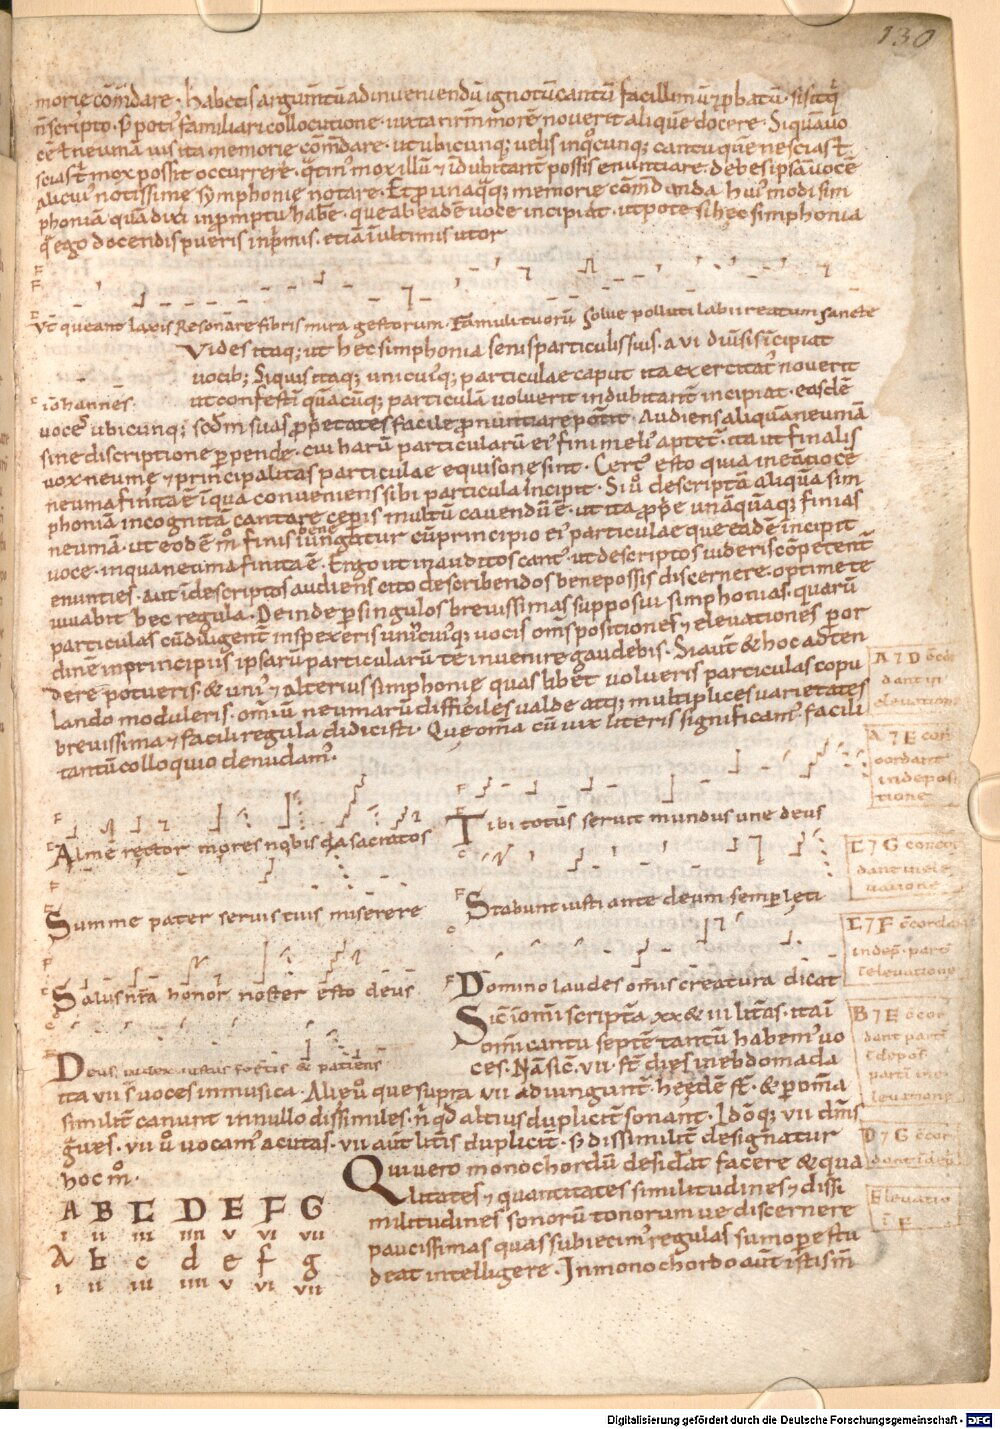 130
morie com̄dare · Habetis argum̄tū ad inveniendū ignotū cantū facillimū ⁊ p̱batū · si sit q̄
n̄ scripto · s; poti' familiari collocutione · iuxta n̄rm̄ morē noverit aliquē docere · Si quā uo
cē ł neumā uis ita memorie com̄dare · ut ubicunq; uelis in q̊cunq; cantu quē nescias ł
scias ł mox possit occurrere · q̄tin' mox illū ⁊ īdubitant̄ possis enuntiare · debes ipsā uocē
alicui' notissime symphonie notare · Et p̱ unaq̄q; memorie com̄danda hui' modi sim
phoniā quā dixi inpromptu habe · que ab eadē uoce incipiat · utpote si hec simphonia
q̄ ego docendis pueris inp̄mis · etiā ī ultimis utor
Ut queant laxis Resonare fibris mira gestorum · Famuli tuorū Solue polluti labii reatum sancte
iohannes ·
Vides itaq; ut hec simphonia senis particulis suis · a vi diuīsis īcipiat
uocib; Si quis itaq; unicui'q; particulae caput ita exercitat' noverit
ut confesti quacūq; particulā voluerit indubitant̄ incipiat · easdē
voces ubicunq; scd̄m suas prop̄etates facile pronuntiare pot̄it · Audiens aliquā neumā
sine discriptione p̱pende · cui harū particularū ei' fini meli' aptet̄ · ita ut finalis
vox neume ⁊ principalitas particulae equisone sint · Cert' esto quia in eā uoce
neuma finita ē ī qua conveniens sibi particula incipit · Si ů descriptā aliquā sim
phoniā incognitā cantare ceperis multū cavendū ē · ut ita prop̄e unāquāq; finias
neumā · ut eodē m̊ finis bene iungatur cū principio ei' particulae que eadē incipit
voce · in qua neuma finita ē · Ergo ut inauditos cant' · ut descriptos uideris cōpetent̄
enunties · aut īdescriptos audiens cito describendos bene possis discernere · optime te
iuuabit hec regula · Deinde p̱ singulos brevissimas supposui simphonias · quarū
particulas cū diligent̄ inspexeris uni'cui'q; vocis oms positiones ⁊ elevationes p̱ or
dinē in principiis ipsarū particularū te invenire gaudebis · Si aut̄ & hoc adten
dere potueris · & uni' ⁊ alterius simphonie quas lib&' volueris particulas copu
lando moduleris · omniū neumarū difficiles valde atq; multiplices varietates
brevissima ⁊ facili regula didicisti · Que om̄a cū vix literis significam' · facili
tantū colloquio denudam' ·
Alme rector mores nobis da sacratos
Tibi totus servit mundus une deus
Summe pater servis tuis miserere
Stabunt iusti ante deum semp̱ leti
Salus nr̄a honor noster esto deus
Domino laudes omis creatura dicat
Deus iudex iustus fortis & patiens
Sic ī om̄i scripta xx & iiii litr̄as · ita ī
omi cantu septē tantū habem' vo
ces · Nā sic̄ · vii · st̄ dies in ebdomada
ita vii s̄ voces in musica · Alie ů que supra vii adiungunt̄ heedē st̄ · & p̱ om̄a
similit̄ canunt in nullo dissimiles · n̄ qd altius duplicit̄ sonant · Idoq; vii dm̄s
graves · vii ů vocam' acutas · vii aut̄ litr̄is duplicit̄ · s; dissimilit̄ designatur
hoc m̊ ·
A B C D E F G
i ii iii iiii v vi vii
A b c d e f g
i ii iii iiii v vi vii
Qui vero monochordū desid̄at facere & qua
litates ⁊ quantitates similitudines ⁊ dissi
militudines sonorū tonorum ue discernere
paucissimas quas subiecim' regulas summop̱e stu
deat intelligere · In monochordo aut̄ istis m̄
A ⁊ D
elevatione
A ⁊ E con
cordant
in depos
itione
C ⁊ G concor
dant in ele
vatione
C ⁊ F
B ⁊ E
D ⁊ G
Elevatio
Digitalisierung gefördert durch die Deutsche Forschungsgemeinschaft - DFG